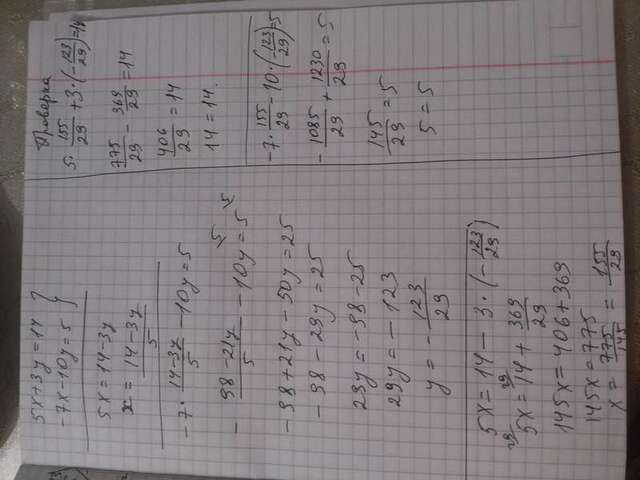 5x+3y=14 }
-7x-10y=5 }
5x=14-3y
x = (14-3y)/5
-7 · (14-3y)/5 - 10y = 5
- (98-21y)/5 - 10y = 5
-98+21y-50y=25
-98-29y=25
29y=-98-25
29y=-123
y = - 123/29
5x = 14 - 3 · (- 123/29)
5x = 14 + 369/29
145x = 406+369
145x = 775
x = 775/145 = 155/29
Проверка
5 · 155/29 + 3 · (- 123/29) = 14
775/29 - 369/29 = 14
406/29 = 14
14 = 14.
-7 · 155/29 - 10 · (- 123/29) = 5
- 1085/29 + 1230/29 = 5
145/29 = 5
5 = 5